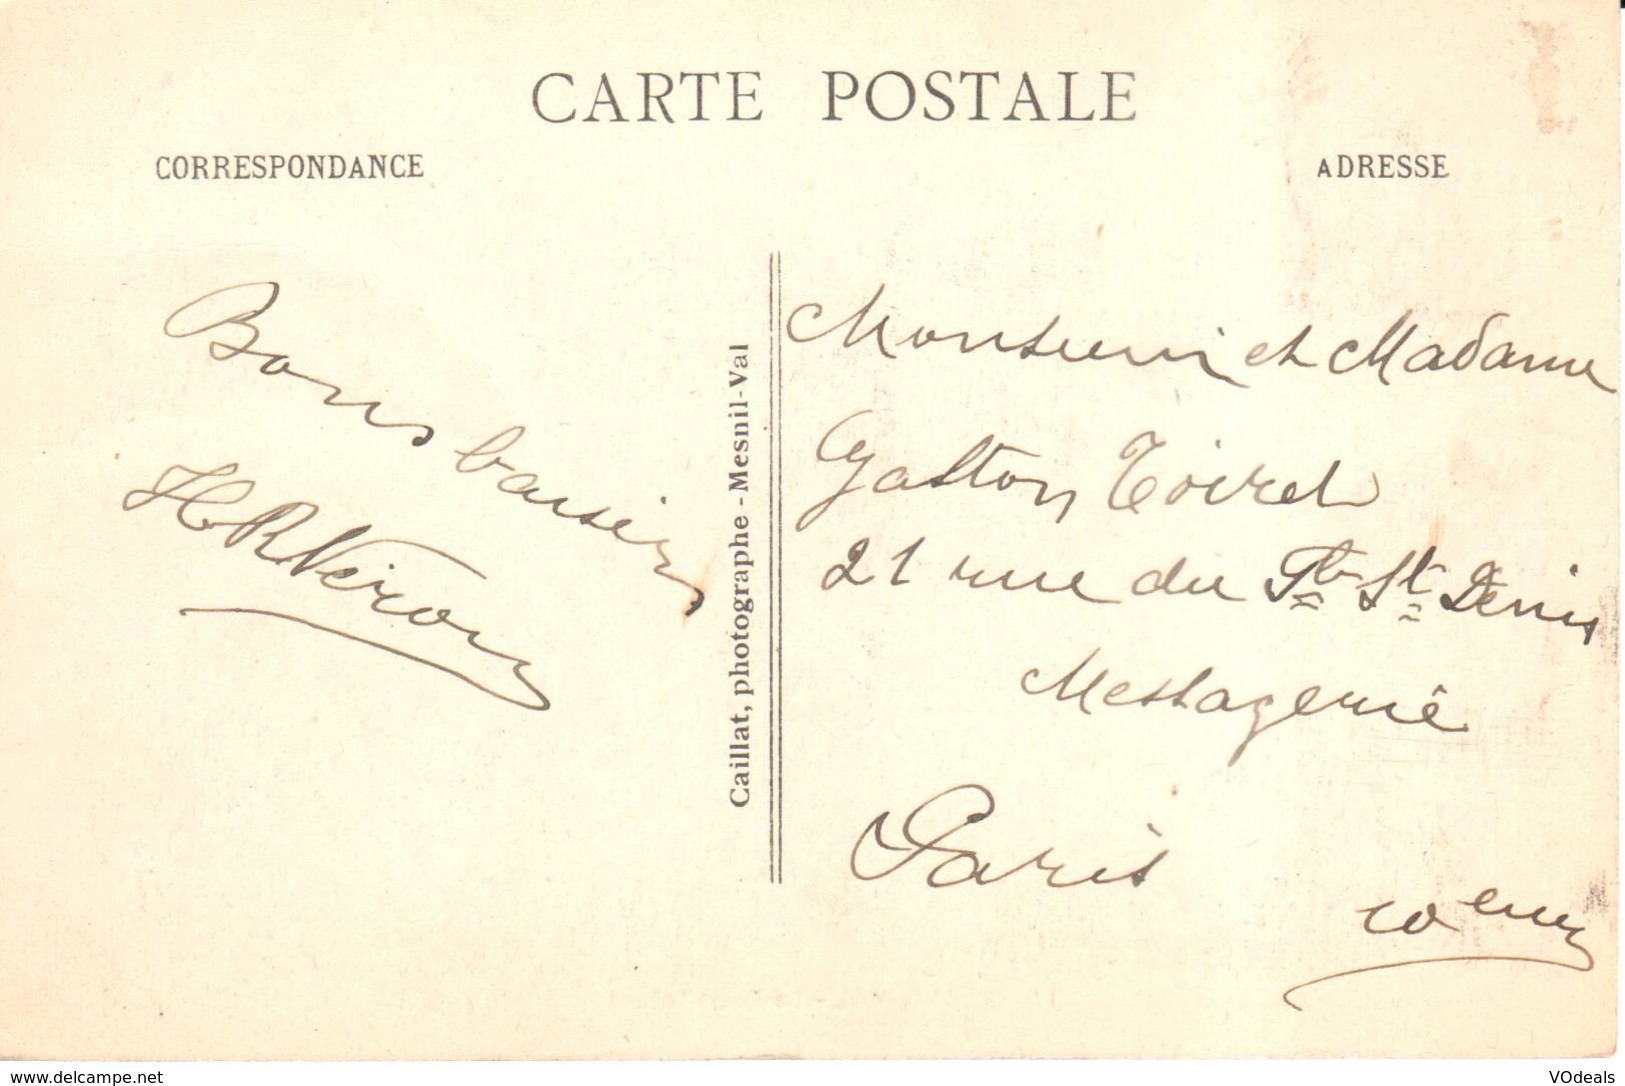 CARTE POSTALE
CORRESPONDANCE
ADRESSE
Bons baisers
HRVéron
Caillat, photographe - Mesnil-Val
Monsieur et Madame
Gaston Toiret
21 rue du Fb St Denis
Messagerie
Paris
10eme
www.delcampe.net
VOdeals